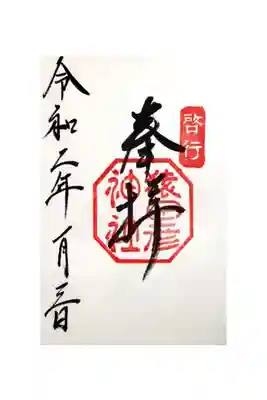 啓行
奉拝
猿田彦
神社
令和二年一月三日